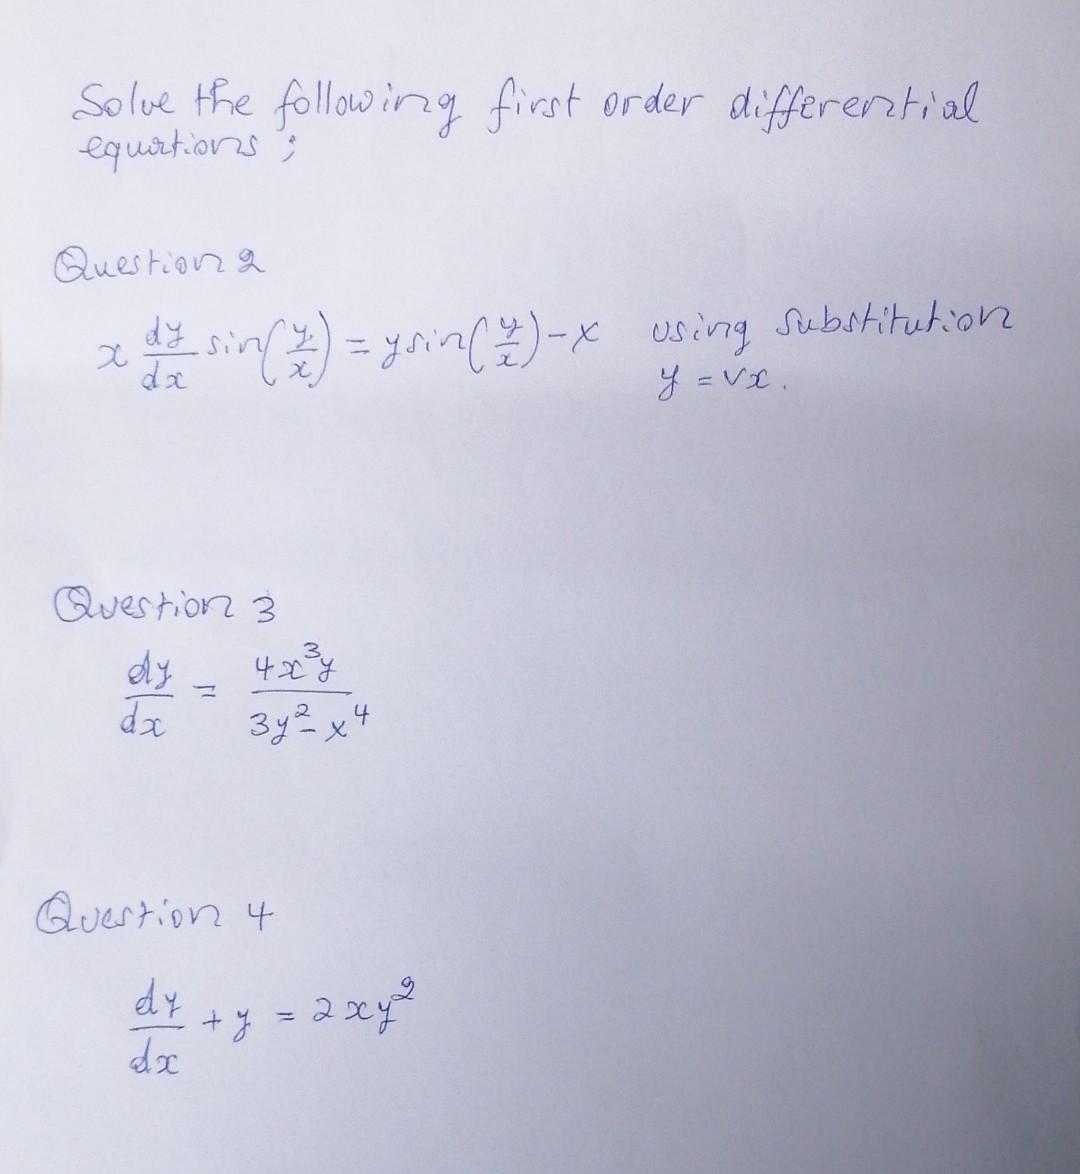 Solve the following first order differential
equations;
Question 2
x dy/dx sin(y/x) = y sin(y/x) - x using substitution
y = vx.
Question 3
dy/dx = 4x³y / 3y² - x⁴
Question 4
dy/dx + y = 2xy²